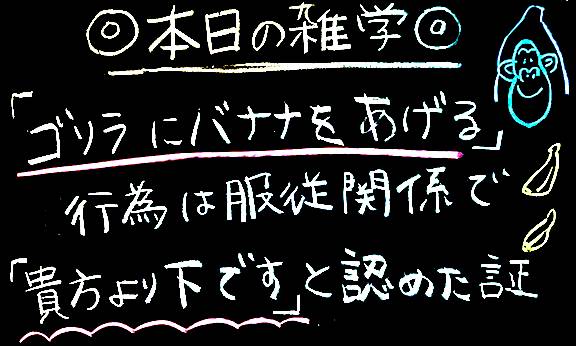 ◎本日の雑学◎
「ゴリラにバナナをあげる」
行為は服従関係で
「貴方より下です」と認めた証